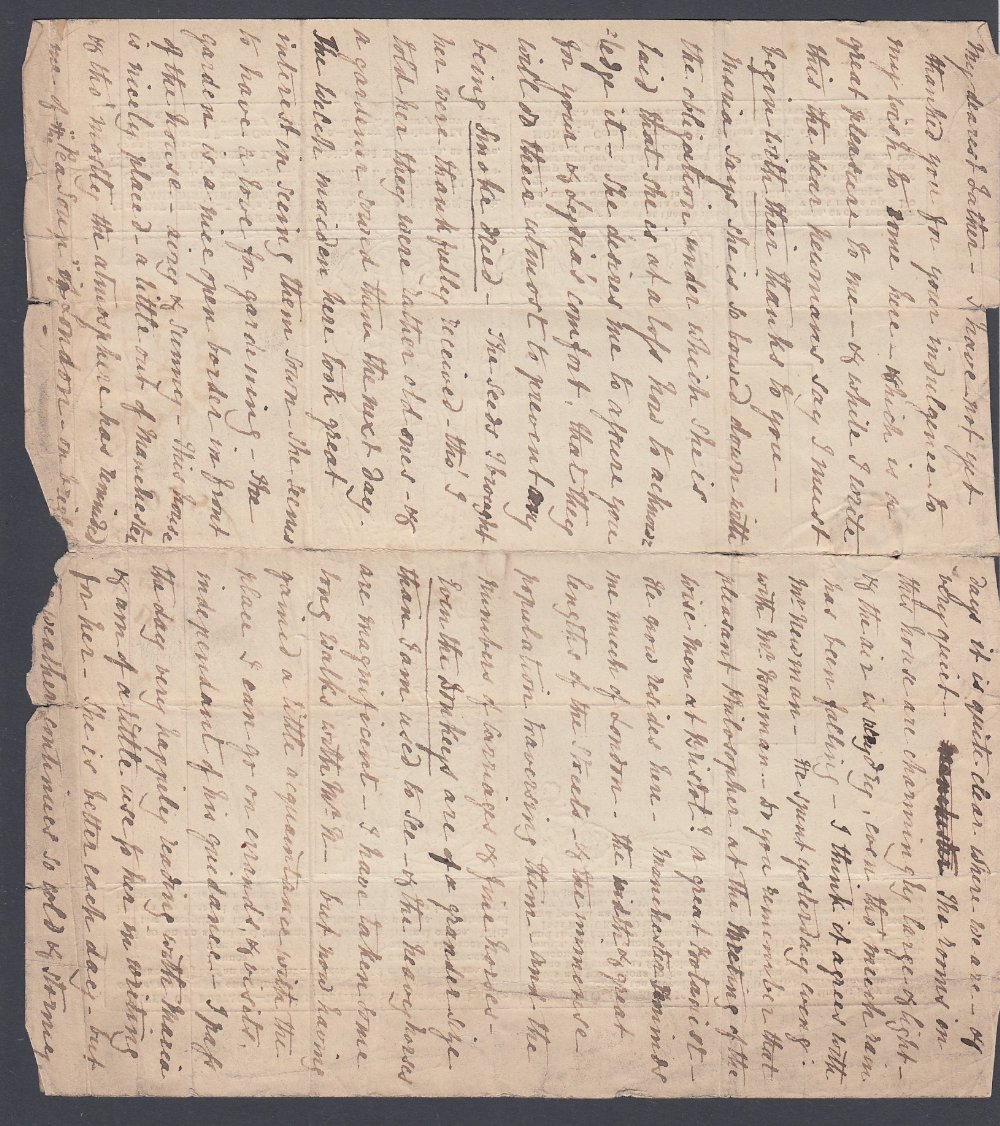 My dearest Father – I have not yet
thanked you for your indulgence to
my wish to come here – which is a
great pleasure to me – & while I write
this the dear Newmans say I must
begin with their thanks to you –
Maria says she is so bowed down with
the obligation under which she is
laid that she is at a loss how to acknow
ledge it – She desires me to assure you
for yours & Lydia's comfort, that they
will do their utmost to prevent my
being Smoke dried – The seeds I brought
her were thankfully received – tho' I
told her they were rather old ones – &
a gardener sowed them the next day.
The week maiden here took great
interest in seeing them sown – She seems
to have a love for gardening – The
garden is a nice open border in front
of the house – airy & sunny – This house
is nicely placed – a little out of Manchester
& tho' mostly the atmosphere has reminded
me of the Pea Soup in London – on
days it is quite clear where we are – &
very quiet – The rooms in
this house are charmingly large & light –
& the air is very dry, even tho' much rain
has been falling – I think it agrees with
Mr Newman – He spent yesterday eveng
with Mr Bowman – do you remember that
pleasant Philosopher at the Meeting of the
wise men at Bristol? a great Botanist –
He now resides here – Manchester reminds
me much of London – the width & great
length of the Streets – & the immense
population traversing them – and the
numbers of Carriages & fine horses –
Even the Donkeys are of a grander size
than I am used to see – & the heavy horses
are magnificent – I have taken some
long walks with Mr N – but now having
gained a little acquaintance with the
place I can go on errands, & visits,
independant of his guidance – I pass
the day very happily reading with Maria
& am of a little use to her in writing
for her – She is better each day – but
weather continues so cold & stormy